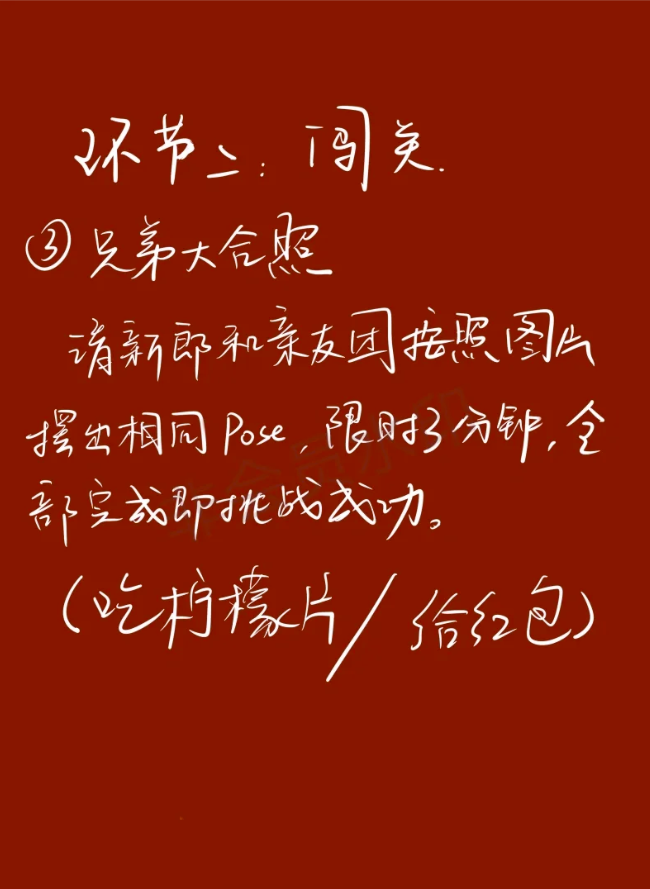 环节二：闯关.
③兄弟大合照
请新郎和亲友团按照图片
摆出相同Pose，限时3分钟，全
部完成即挑战成功。
（吃柠檬片/给红包）